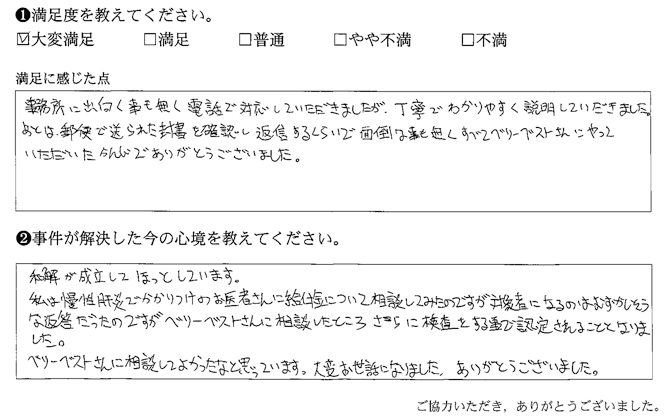 ❶満足度を教えてください。
☑大変満足 □満足 □普通 □やや不満 □不満
満足に感じた点
事務所に出向く事も無く電話で対応していただきましたが、丁寧でわかりやすく説明していだきました。
あとは、郵便で送られた封書を確認し返信するくらいで面倒な事も無くすべてベリーベストさんにやって
いただいたなんじでありがとうございました。
❷事件が解決した今の心境を教えてください。
和解が成立してほっとしています。
私は慢性肝炎でかかりつけのお医者さんに給付金について相談してみたのですが対象者になるのはむずかしそう
な返答だったのですがベリーベストさんに相談したところさらに検査をする事で認定されることとなりま
した。
ベリーベストさんに相談してよかったなと思っています。大変お世話になりました。ありがとうございました。
ご協力いただき、ありがとうございました。